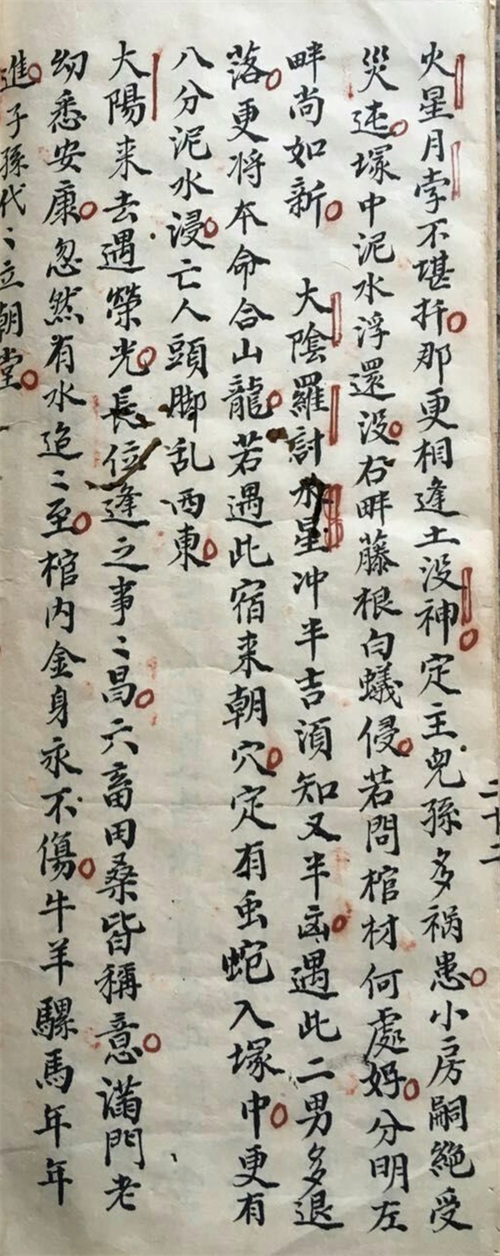 火星月孛不堪扦那更相逢土没神定主兒孫多禍患小房嗣絶受
災迍塚中泥水浮還没右畔藤根白蟻侵若問棺材何處好分明左
畔尚如新 大陰羅計水星冲半吉須知又半凶遇此二男多退
落更将本命合山龍若遇此宿来朝穴定有虫蛇入塚中更有
八分泥水浸亡人頭脚乱西東
大陽来去遇榮光長位逢之事〻昌六畜田桑皆稱意滿門老
幼悉安康忽然有水迯〻至棺内金身永不傷牛羊騾馬年年
進子孫代〻立朝堂
二十二